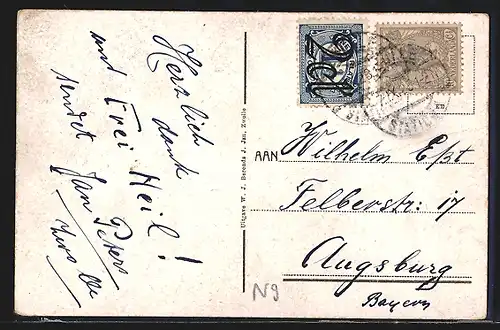 Herzlich
dank
und Frei Heil!
sendet Jan Peters
Zwolle
Uitgave W. J. Berends J. Jzn, Zwolle
2 ct
NEDERLAND
AAN
Wilhelm Ept
Felberstr: 17
Augsburg
Bayern
N9